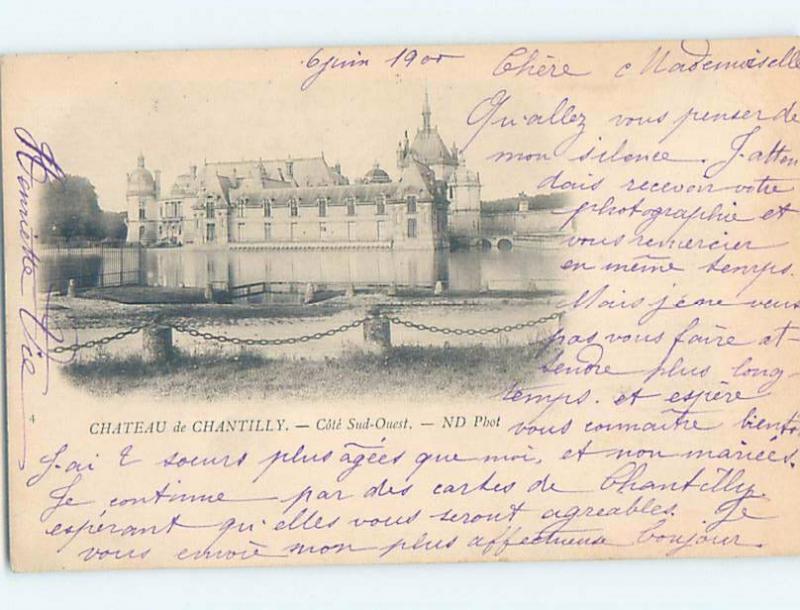 6 juin 1900
Chère Mademoiselle
Qu'allez vous penser de
mon silence. J'atten
dais recevoir votre
photographie et
vous remercier
en même temps.
Mais je ne veux
pas vous faire at-
tendre plus long-
temps. et espère
vous connaître bientôt
J'ai 2 soeurs plus âgées que moi, et non mariées.
Je continue par des cartes de Chantilly
espérant qu'elles vous seront agréables. Je
vous envoie mon plus affectueux bonjour.
Henriette Vié
4
CHATEAU de CHANTILLY. — Côté Sud-Ouest. — ND Phot